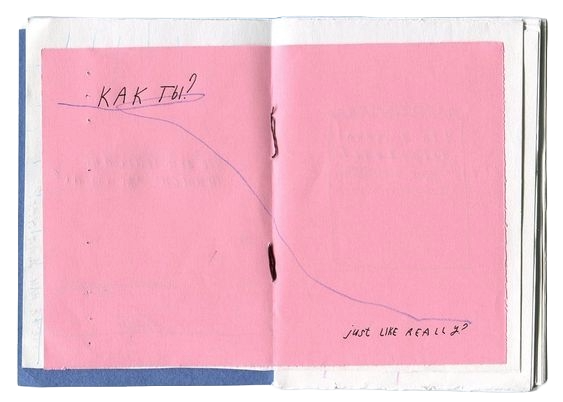 КАК ТЫ?
just LIKE REALLY?